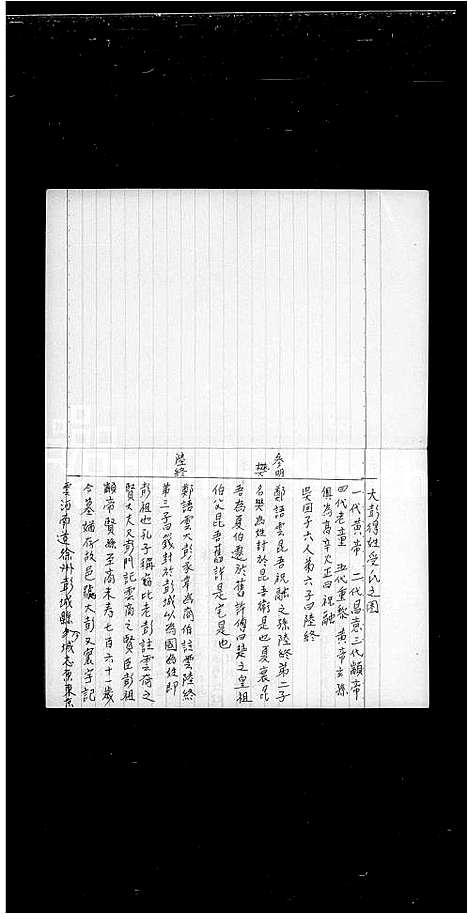 大彭得姓受氏之圖
一代黃帝 二代昌意 三代顓帝
四代老童 五代重黎 黃帝玄孫
俱為高辛火正曰祝融
吳回子六人第六子曰陸終
參明
樊
鄭語雲昆吾祝融之孫陸終第二子
名樊為姓封於昆吾衛是也夏衰昆
吾為夏伯遷於舊許傳曰楚之皇祖
伯父昆吾舊許是宅是也
陸終
鄭語雲大彭豕韋為商伯註雲陸終
第三子曰籛封於彭城以為國為姓即
彭祖也孔子稱竊比老彭註雲商之
賢大夫又彭門記雲商之賢臣彭祖
顓帝賢孫至商末考七百六十一歲
今墓猶存故邑號大彭又寰宇記
雲河南道徐州彭城縣